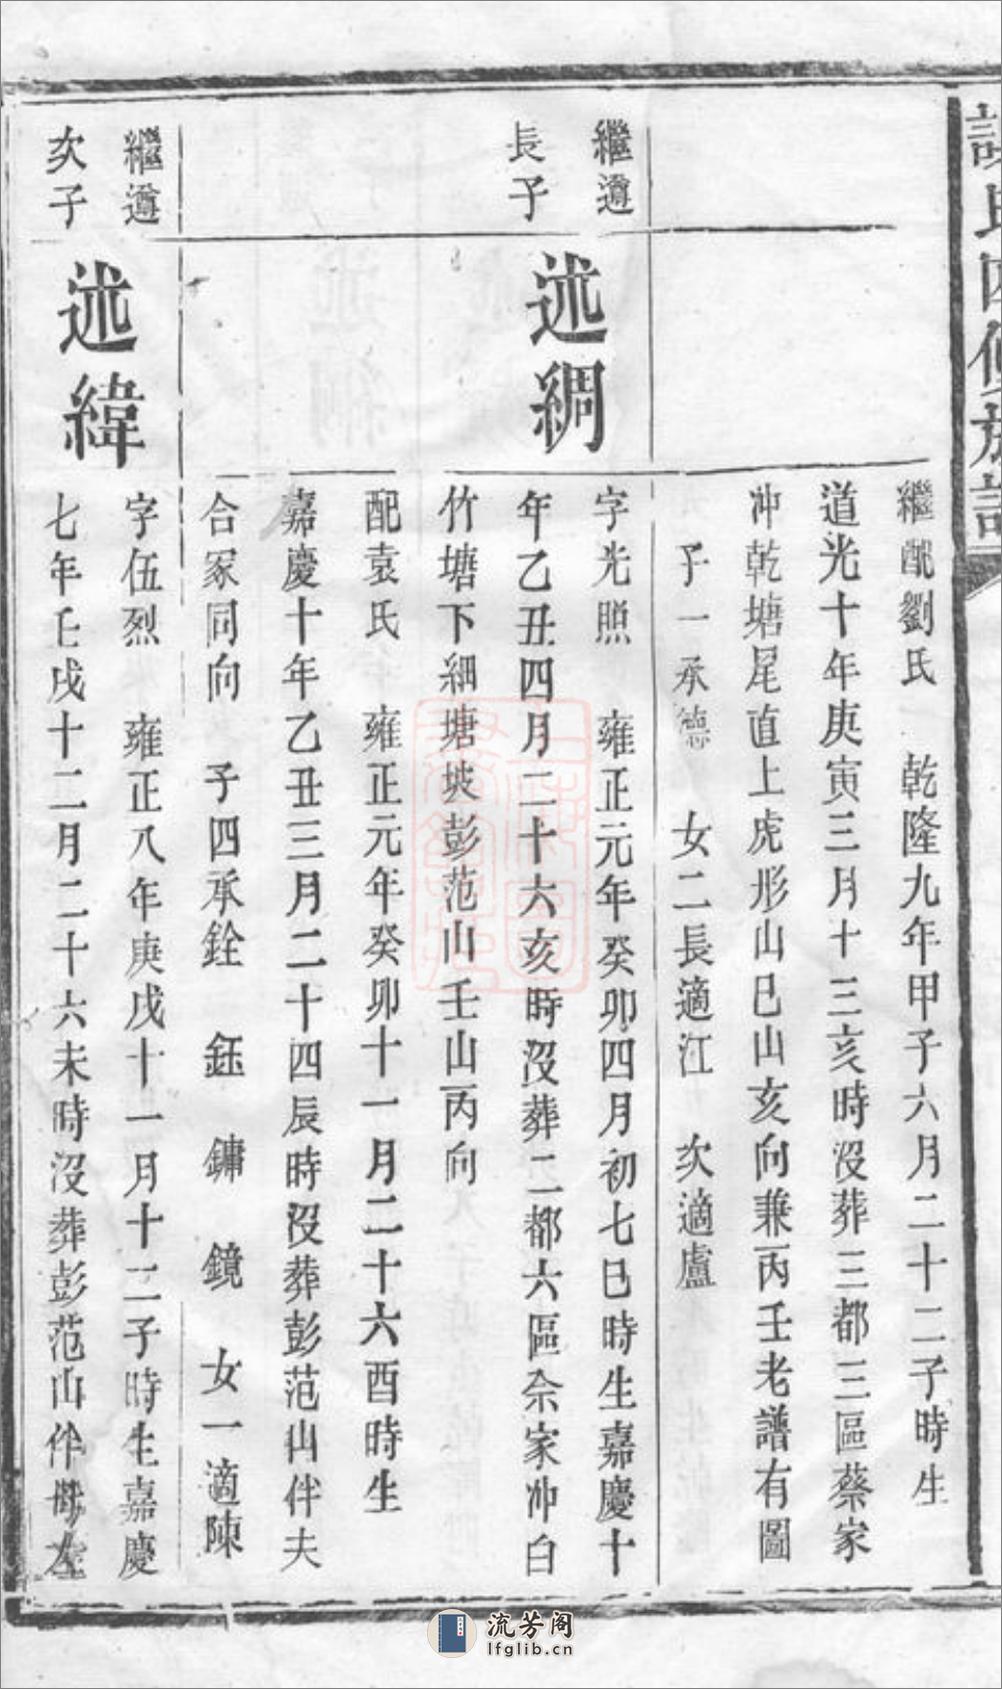 氏四修族譜
繼配劉氏　乾隆九年甲子六月二十二子時生
道光十年庚寅三月十三亥時沒葬三都三區蔡家
冲乾塘尾直上虎形山巳山亥向兼丙壬老譜有圖
子一承德　女二長適江　次適盧
繼遵
長子
述綢
字光照　雍正元年癸卯四月初七巳時生嘉慶十
年乙丑四月二十六亥時沒葬二都六區佘家冲白
竹塘下細塘坡彭范山壬山丙向
配袁氏　雍正元年癸卯十一月二十六酉時生
嘉慶十年乙丑三月二十四辰時沒葬彭范山伴夫
合冢同向　子四承銓　鈺　鏞　鏡　女一適陳
繼遵
次子
述緯
字伍烈　雍正八年庚戌十一月十二子時生嘉慶
七年壬戌十二月二十六未時沒葬彭范山伴母左
流芳阁
lfglib.cn